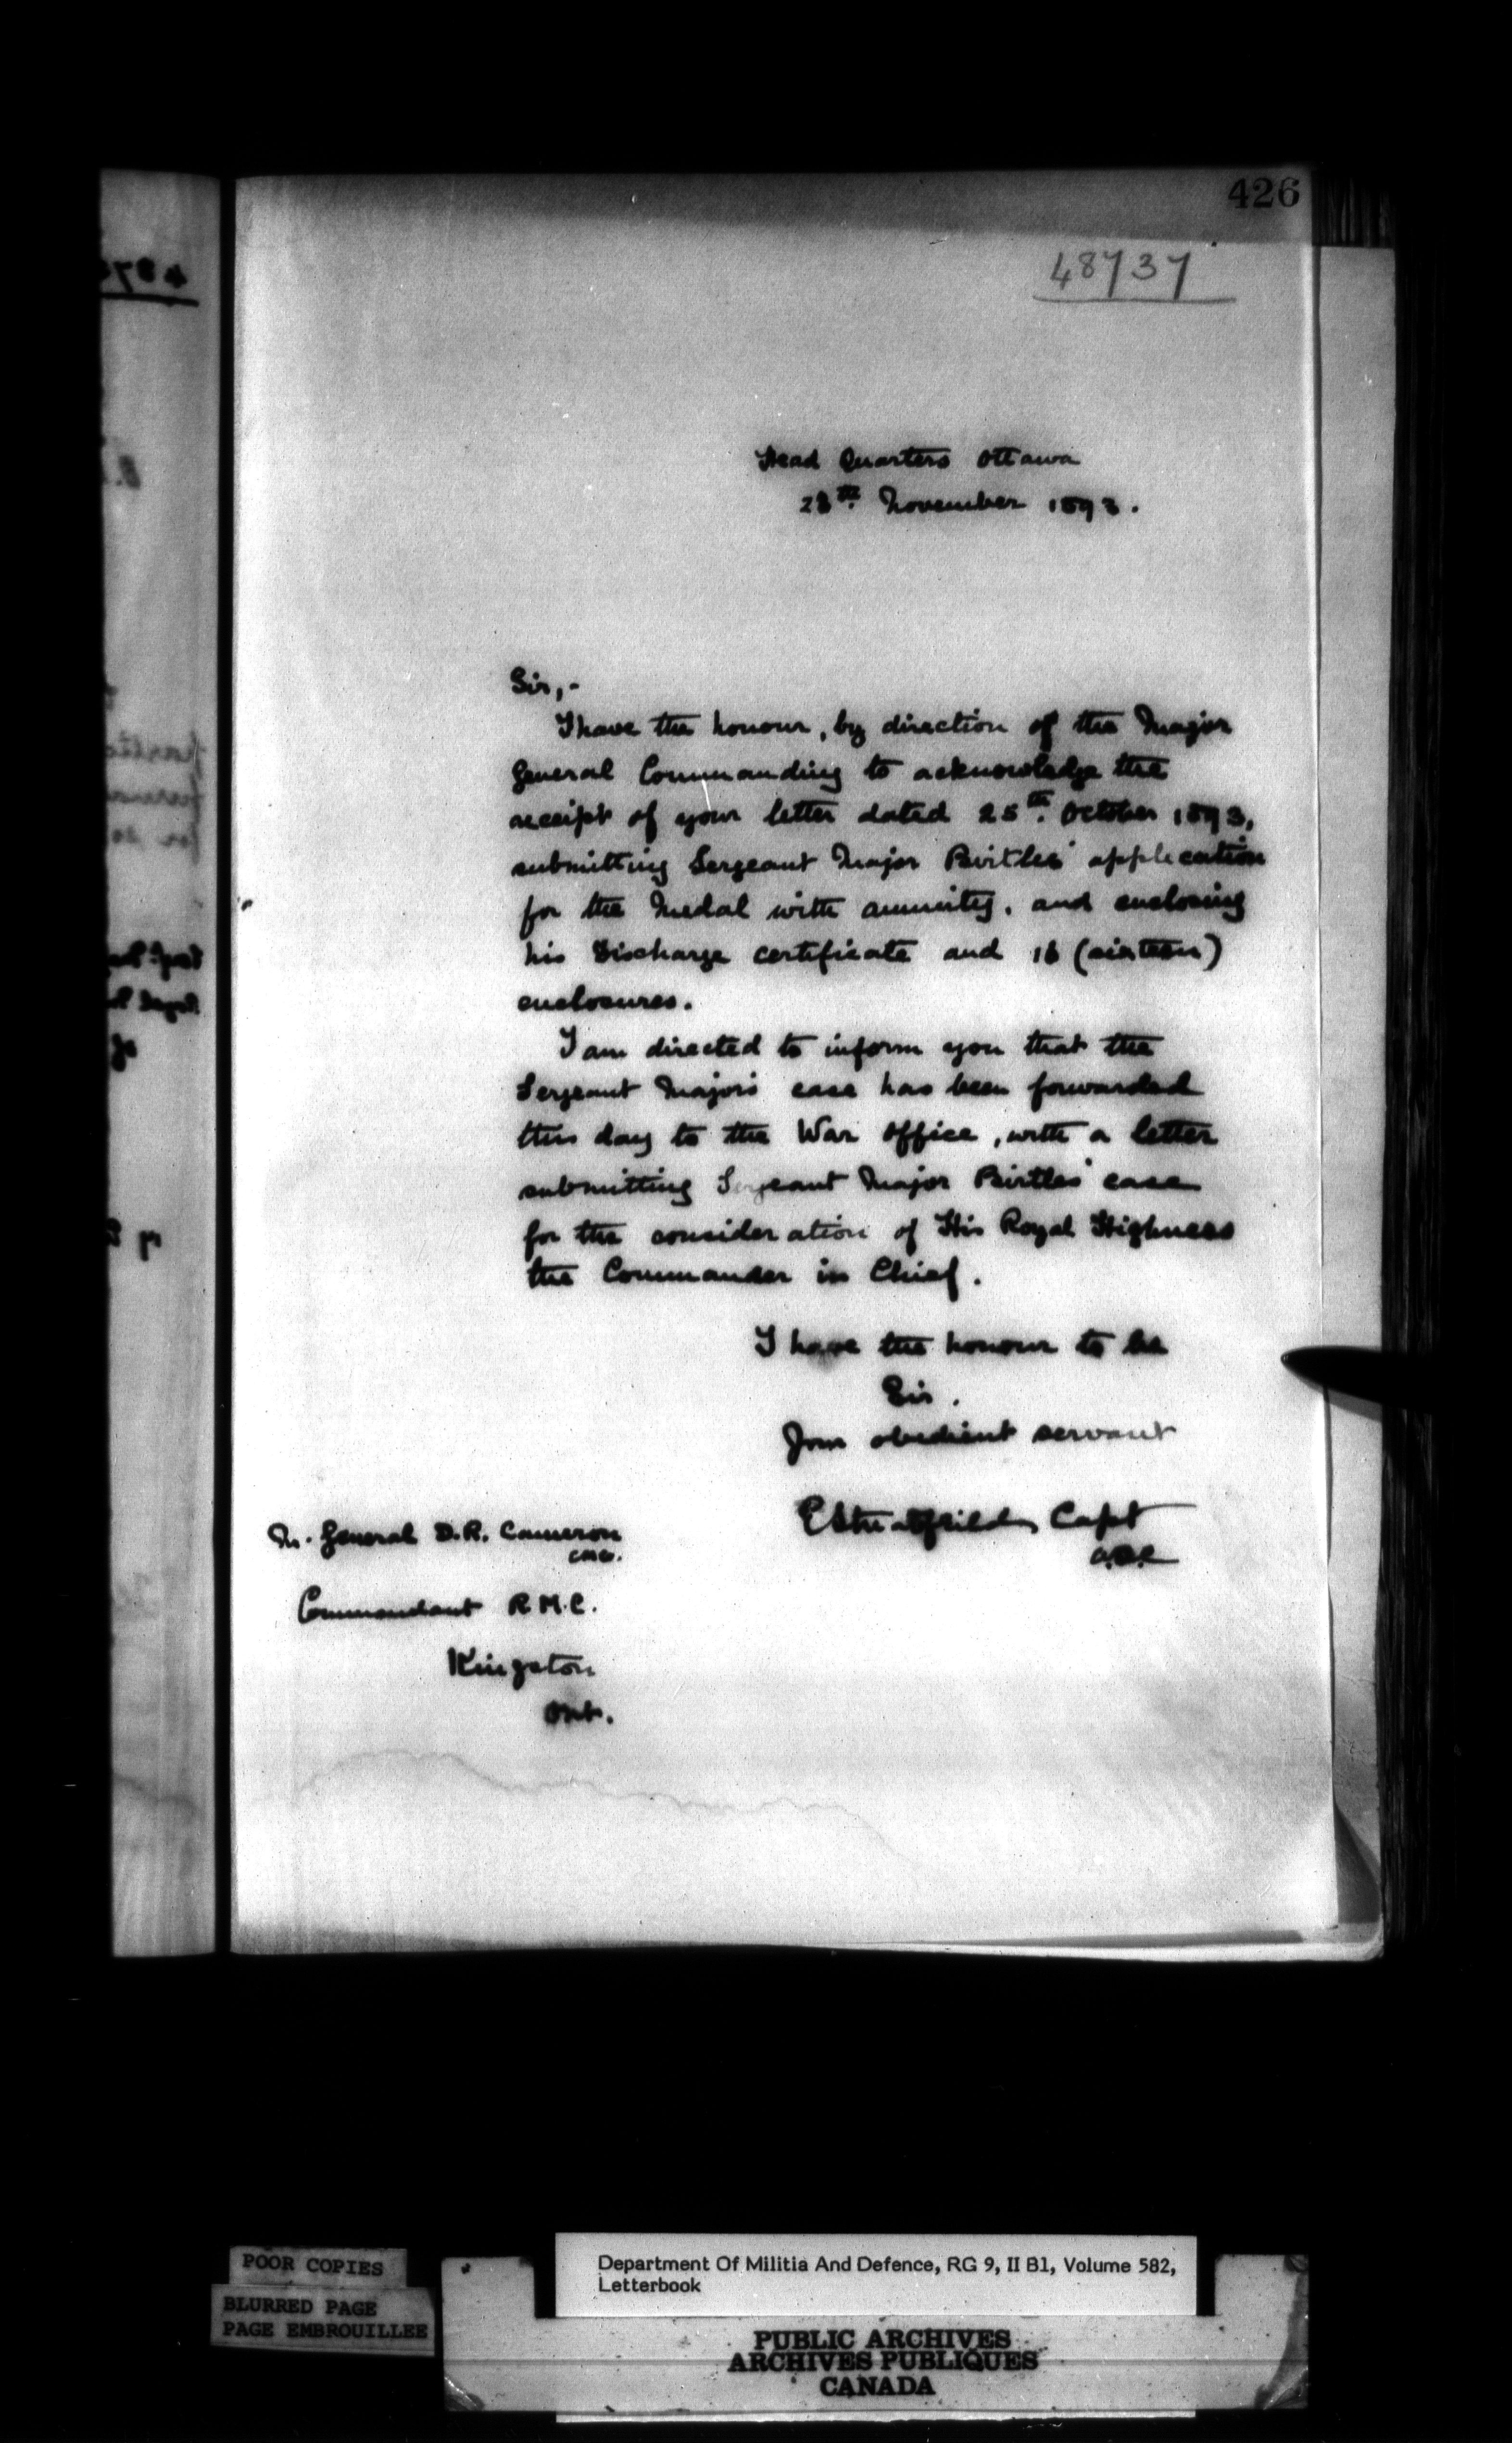 426
48737
Head Quarters Ottawa
28th. November 1893.
Sir,-
I have the honour, by direction of the Major
General Commanding to acknowledge the
receipt of your letter dated 25th. October 1893,
submitting Sergeant Major Birtles' application
for the Medal with annuity, and enclosing
his Discharge certificate and 16 (sixteen)
enclosures.
I am directed to inform you that the
Sergeant Major's case has been forwarded
this day to the War Office, with a letter
submitting Sergeant Major Birtles' case
for the consideration of His Royal Highness
the Commander in Chief.
I have the honour to be
Sir.
Your obedient servant
Capt
A.D.C.
M. General D.R. Cameron
CMG.
Commandant R.M.C.
Kingston
Ont.
POOR COPIES
BLURRED PAGE
PAGE EMBROUILLEE
Department Of Militia And Defence, RG 9, II B1, Volume 582,
Letterbook
PUBLIC ARCHIVES
ARCHIVES PUBLIQUES
CANADA